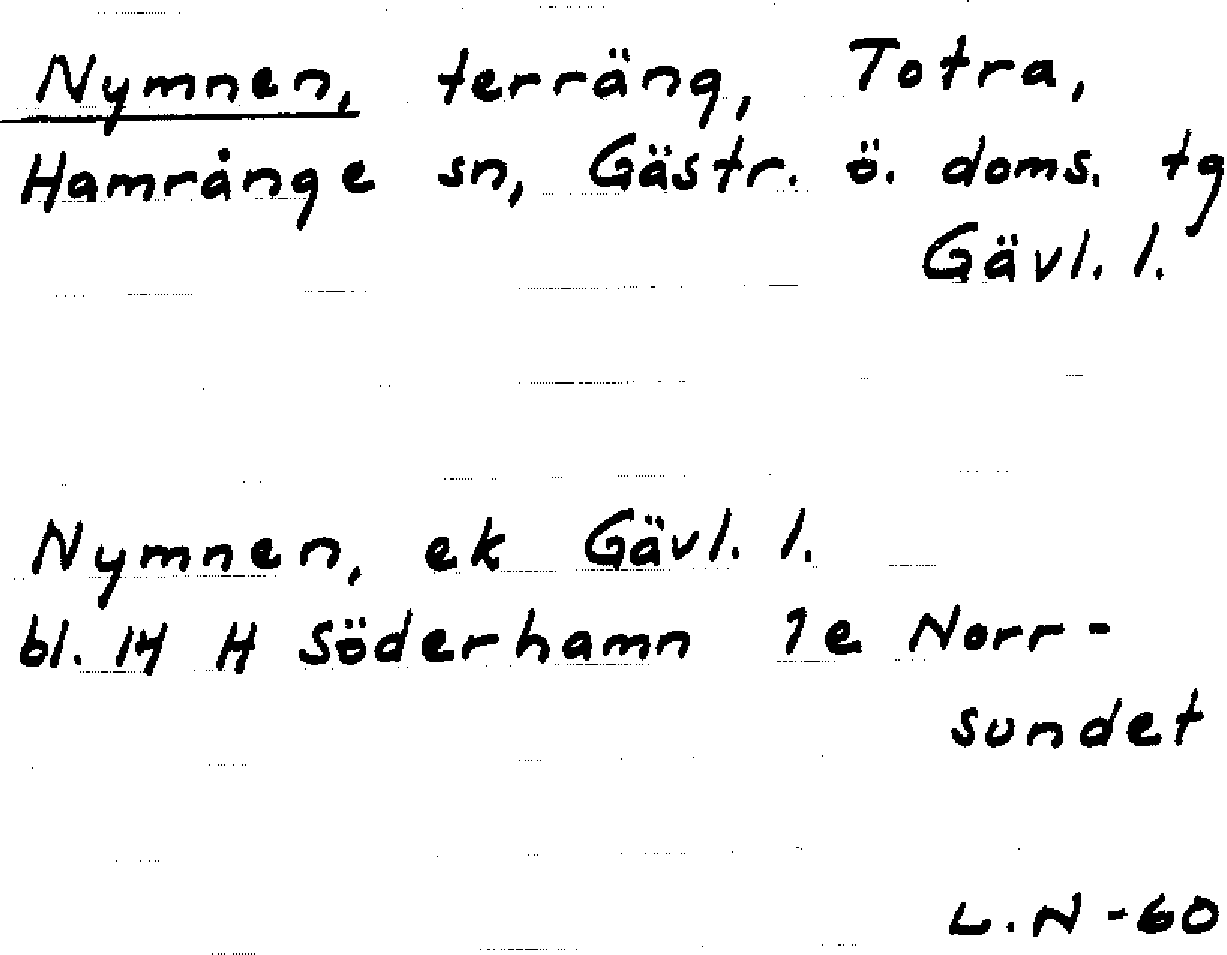 Nymnen, terräng, Totra,
Hamrånge sn, Gästr. ö. doms. tg
Gävl. l.
Nymnen, ek Gävl. l.
bl. 14 H Söderhamn 1e Norr-
sundet
L.N -60